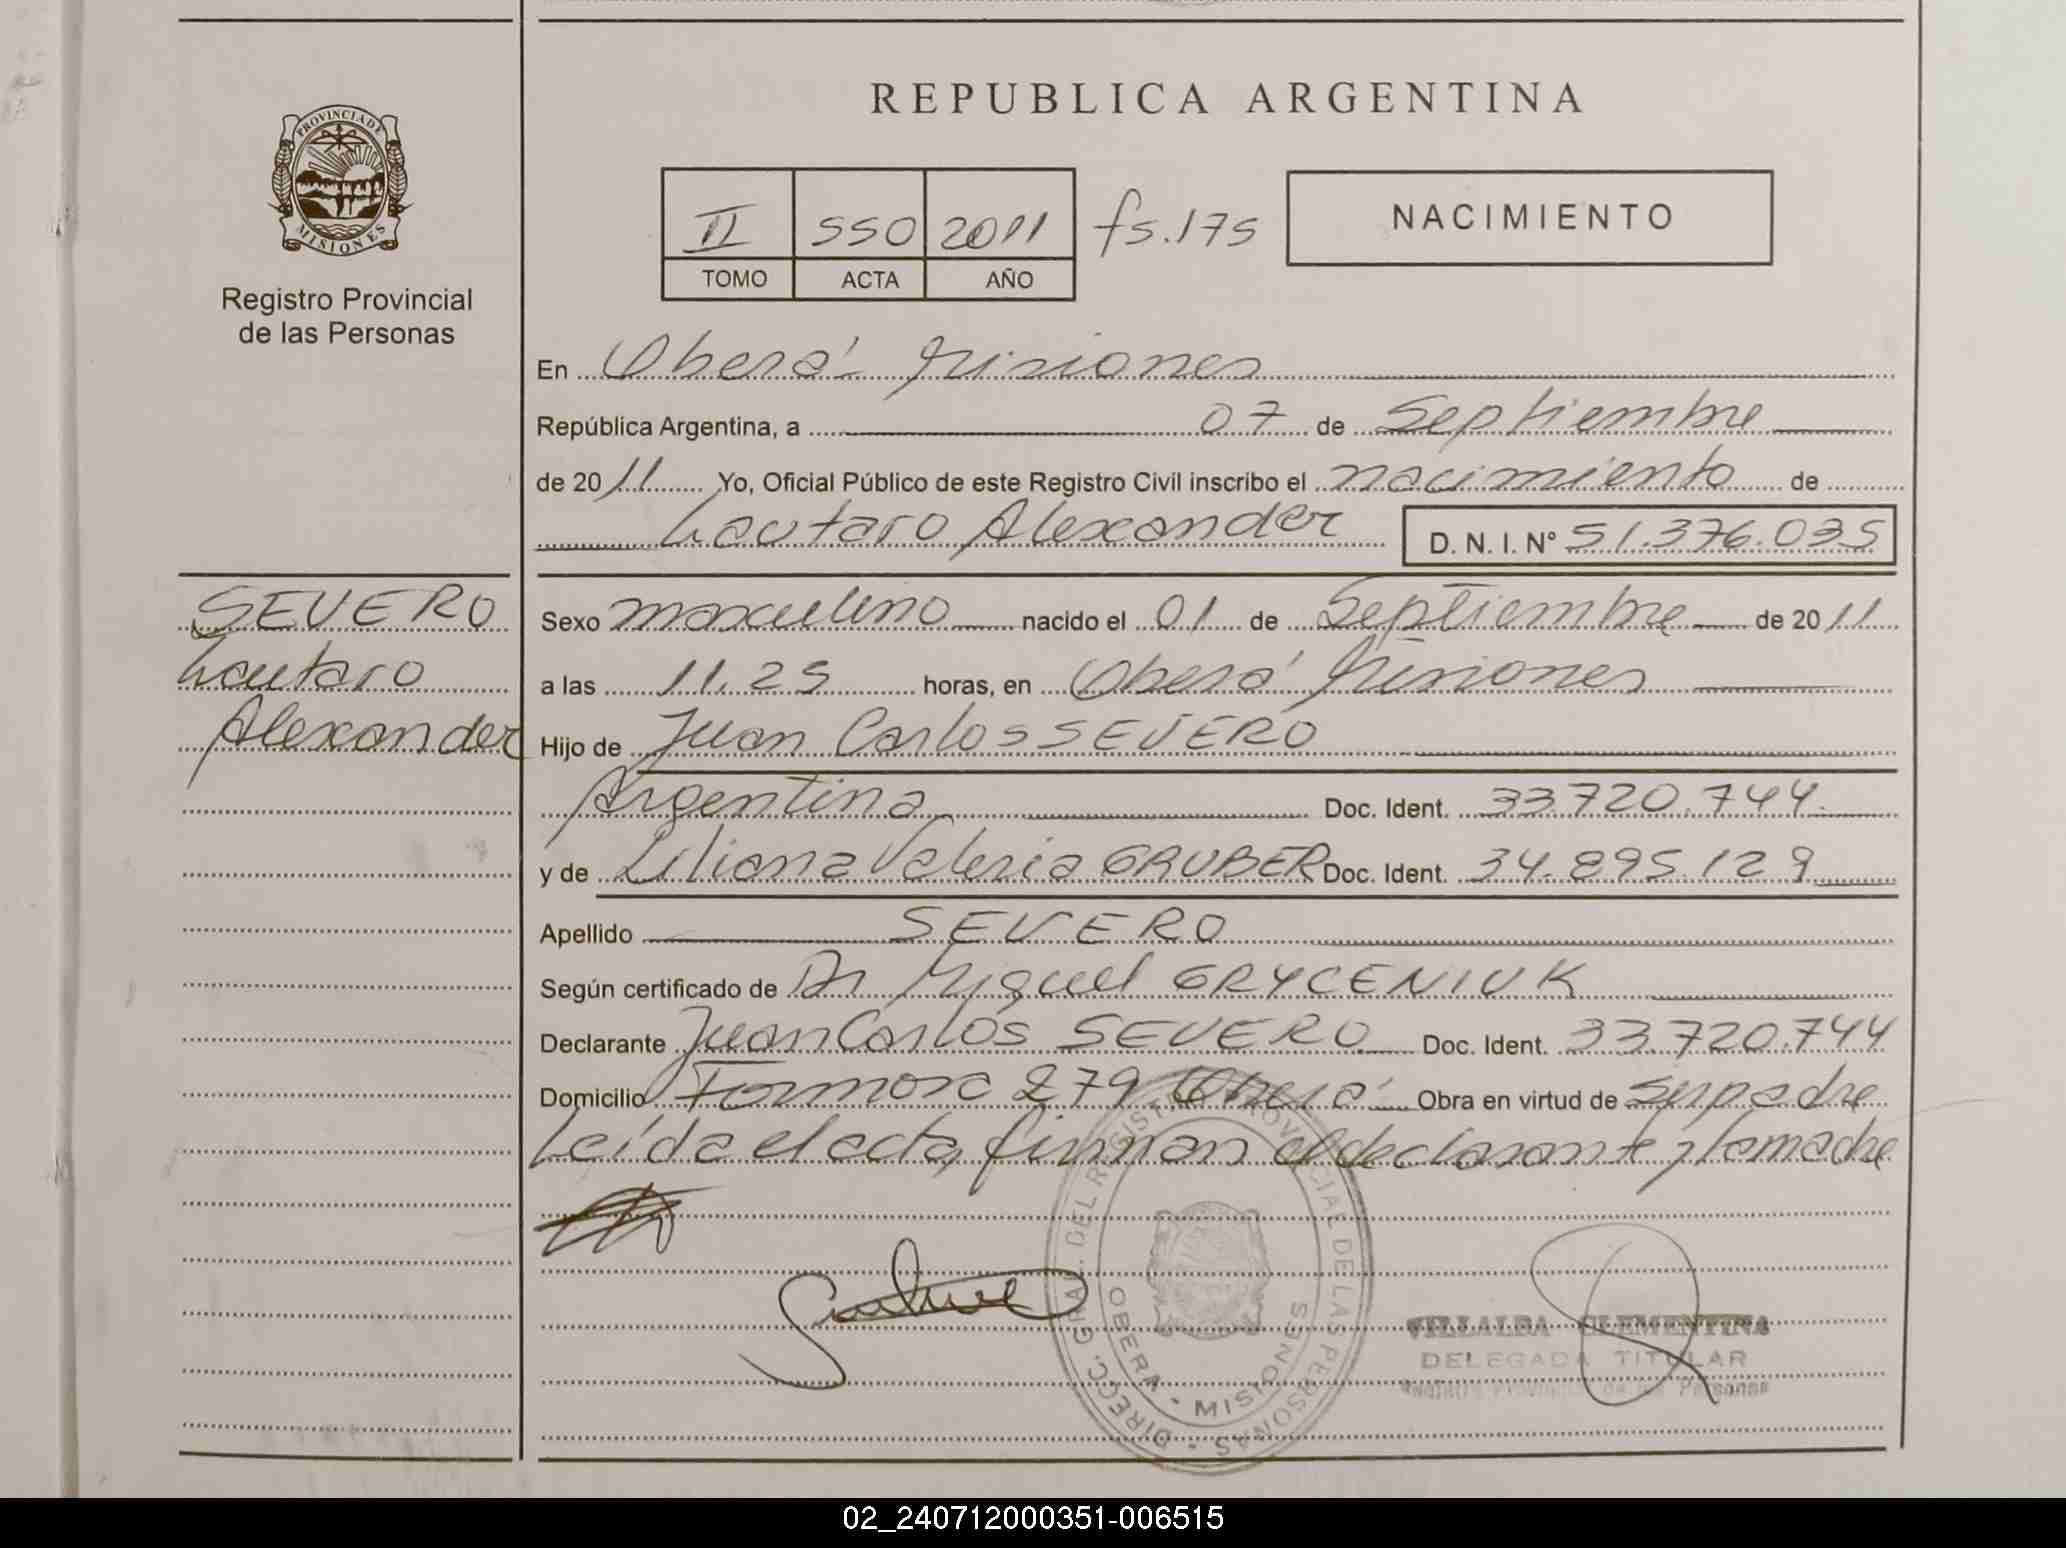 REPUBLICA ARGENTINA
PROVINCIA DE
MISIONES
Registro Provincial
de las Personas
II 550 2011 fs.175
TOMO ACTA AÑO
NACIMIENTO
En Oberá Misiones
República Argentina, a 07 de Septiembre
de 2011 Yo, Oficial Público de este Registro Civil inscribo el nacimiento de
Lautaro Alexander D. N. I. N° 51.376.035
SEVERO
Lautaro
Alexander
Sexo masculino nacido el 01 de Septiembre de 2011
a las 11.25 horas, en Oberá Misiones
Hijo de Juan Carlos SEVERO
Argentina Doc. Ident. 33.720.744
y de Liliana Valeria GRUBER Doc. Ident. 34.895.129
Apellido SEVERO
Según certificado de Dr Miguel GRYCENIUK
Declarante Juan Carlos SEVERO Doc. Ident. 33.720.744
Domicilio Formosa 279 Oberá Obra en virtud de ser padre
Leída el acta, firman el declarante y la madre
DIRECC. GRAL. DEL REGISTRO PROVINCIAL DE LAS PERSONAS
OBERA - MISIONES
VILLALBA CLEMENTINA
DELEGADA TITULAR
Registro Provincial de las Personas
02_240712000351-006515